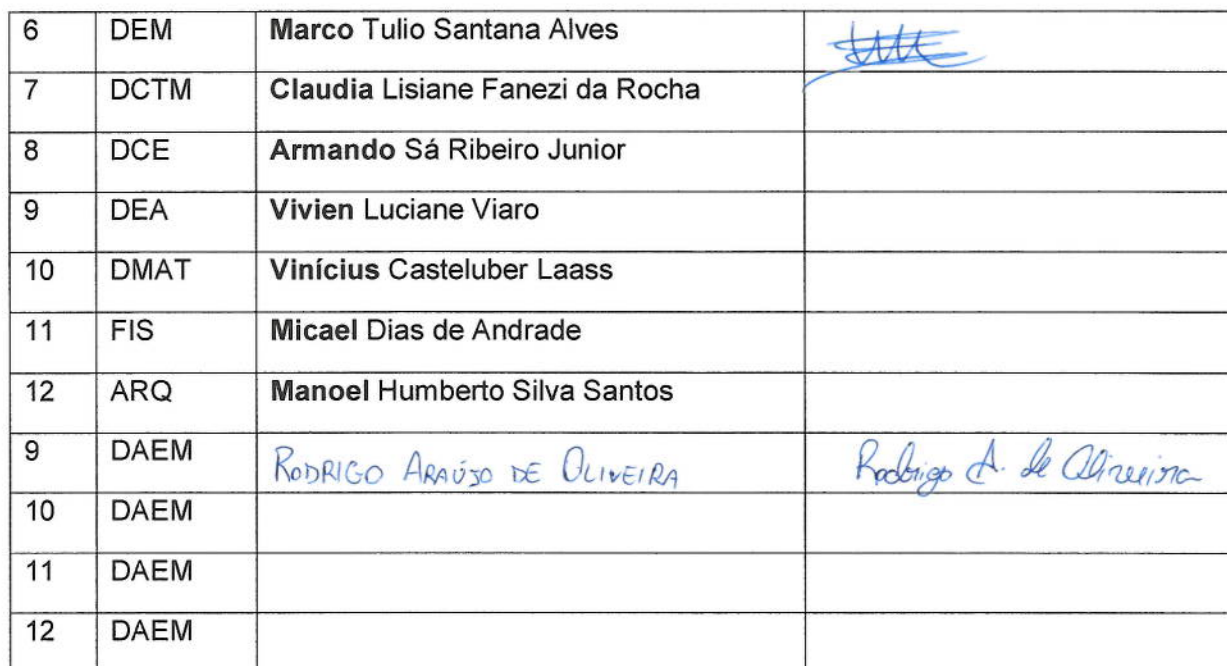 6 DEM Marco Tulio Santana Alves
7 DCTM Claudia Lisiane Fanezi da Rocha
8 DCE Armando Sá Ribeiro Junior
9 DEA Vivien Luciane Viaro
10 DMAT Vinícius Casteluber Laass
11 FIS Micael Dias de Andrade
12 ARQ Manoel Humberto Silva Santos
9 DAEM RODRIGO ARAÚJO DE OLIVEIRA Rodrigo A. de Oliveira
10 DAEM
11 DAEM
12 DAEM